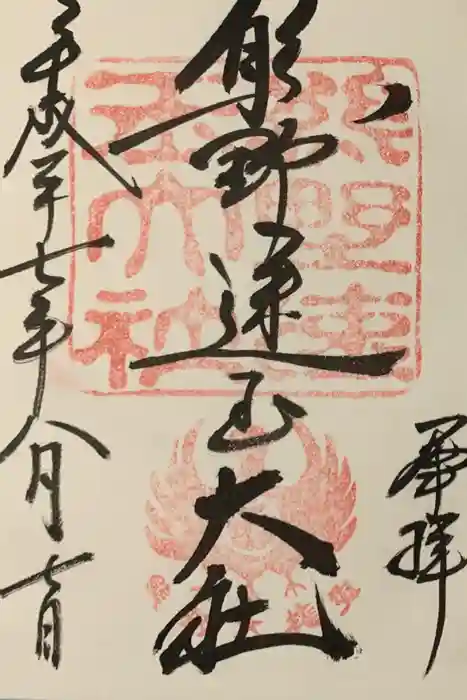 奉拝
熊野速玉大社
熊野速
玉大社
平成二十七年八月七日